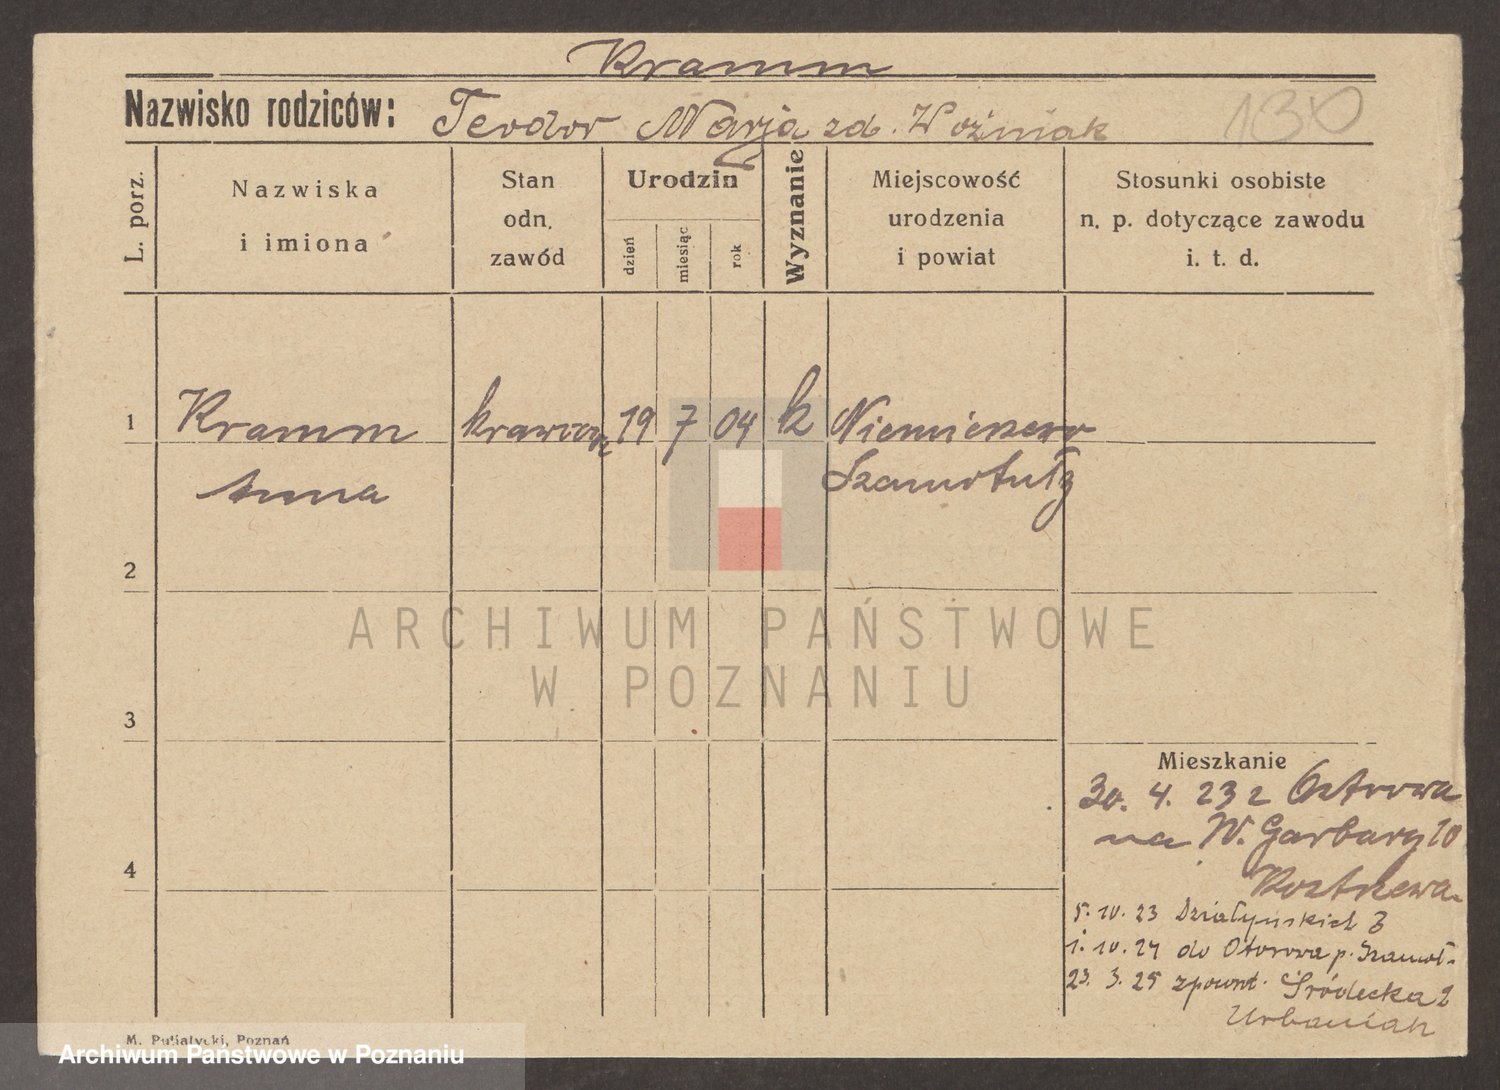 Kramm
Nazwisko rodziców: Teodor Marja zd. Woźniak 130
L. porz.
Nazwiska
i imiona
Stan
odn.
zawód
Urodzin
dzień
miesiąc
rok
Wyznanie
Miejscowość
urodzenia
i powiat
Stosunki osobiste
n. p. dotyczące zawodu
i. t. d.
1 Kramm 19 7 04 k
Anna Szamotuły
2
ARCHIWUM PAŃSTWOWE
W POZNANIU
3
Mieszkanie
30. 4. 23 z
na W. Garbary 10
4
5. 10. 23 Działyńskich
1. 10. 24 do Otorowa p. Szamot.
23. 3. 25 zpowrt. Śródecka 2
Urbaniak
M. Putiatycki, Poznań
Archiwum Państwowe w Poznaniu